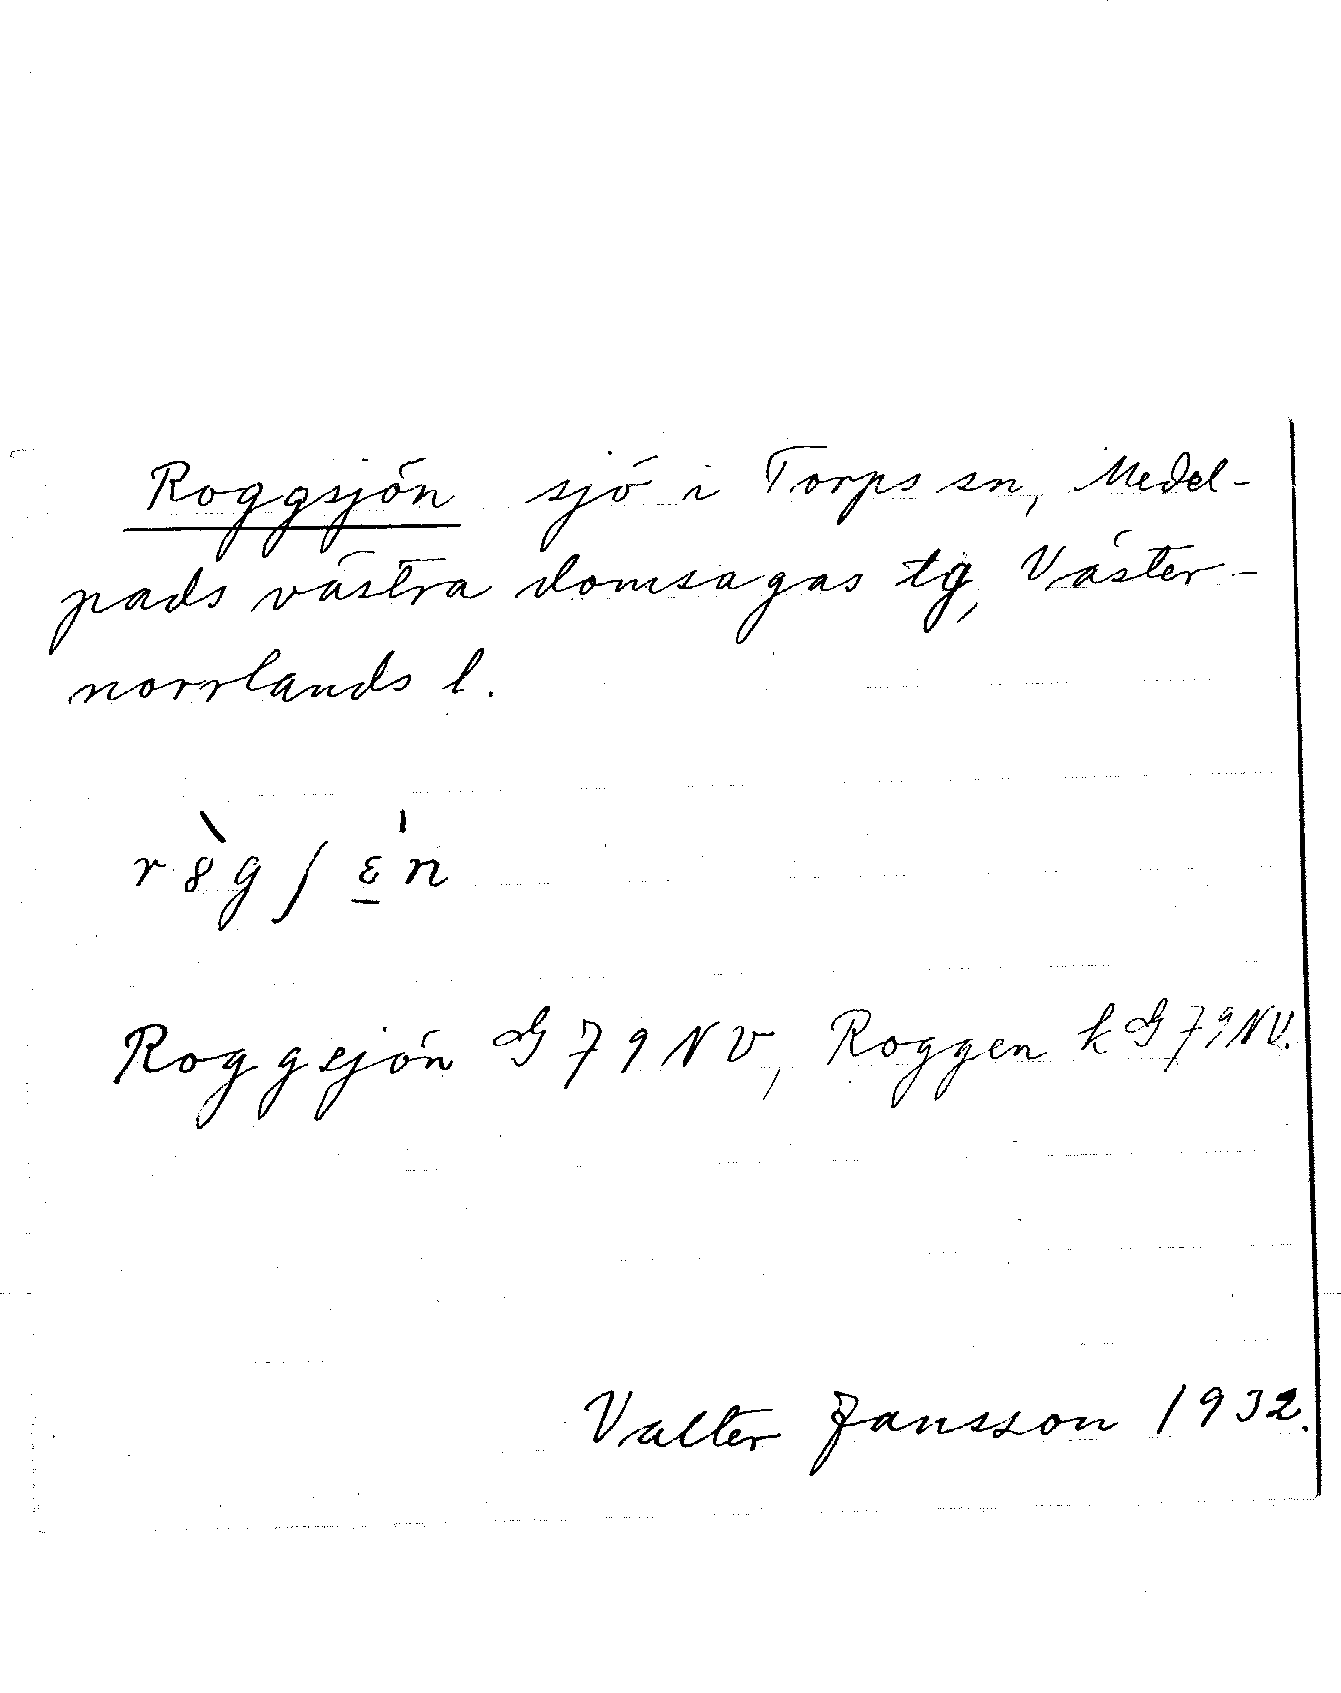 Roggsjön sjö i Torps sn, Medel-
pads västra domsagas tg, Väster-
norrlands l.
r8̀gʃɛ̲́n
Roggsjön G 79 NV, Roggen k G 79 NV.
Valter Jansson 1932.